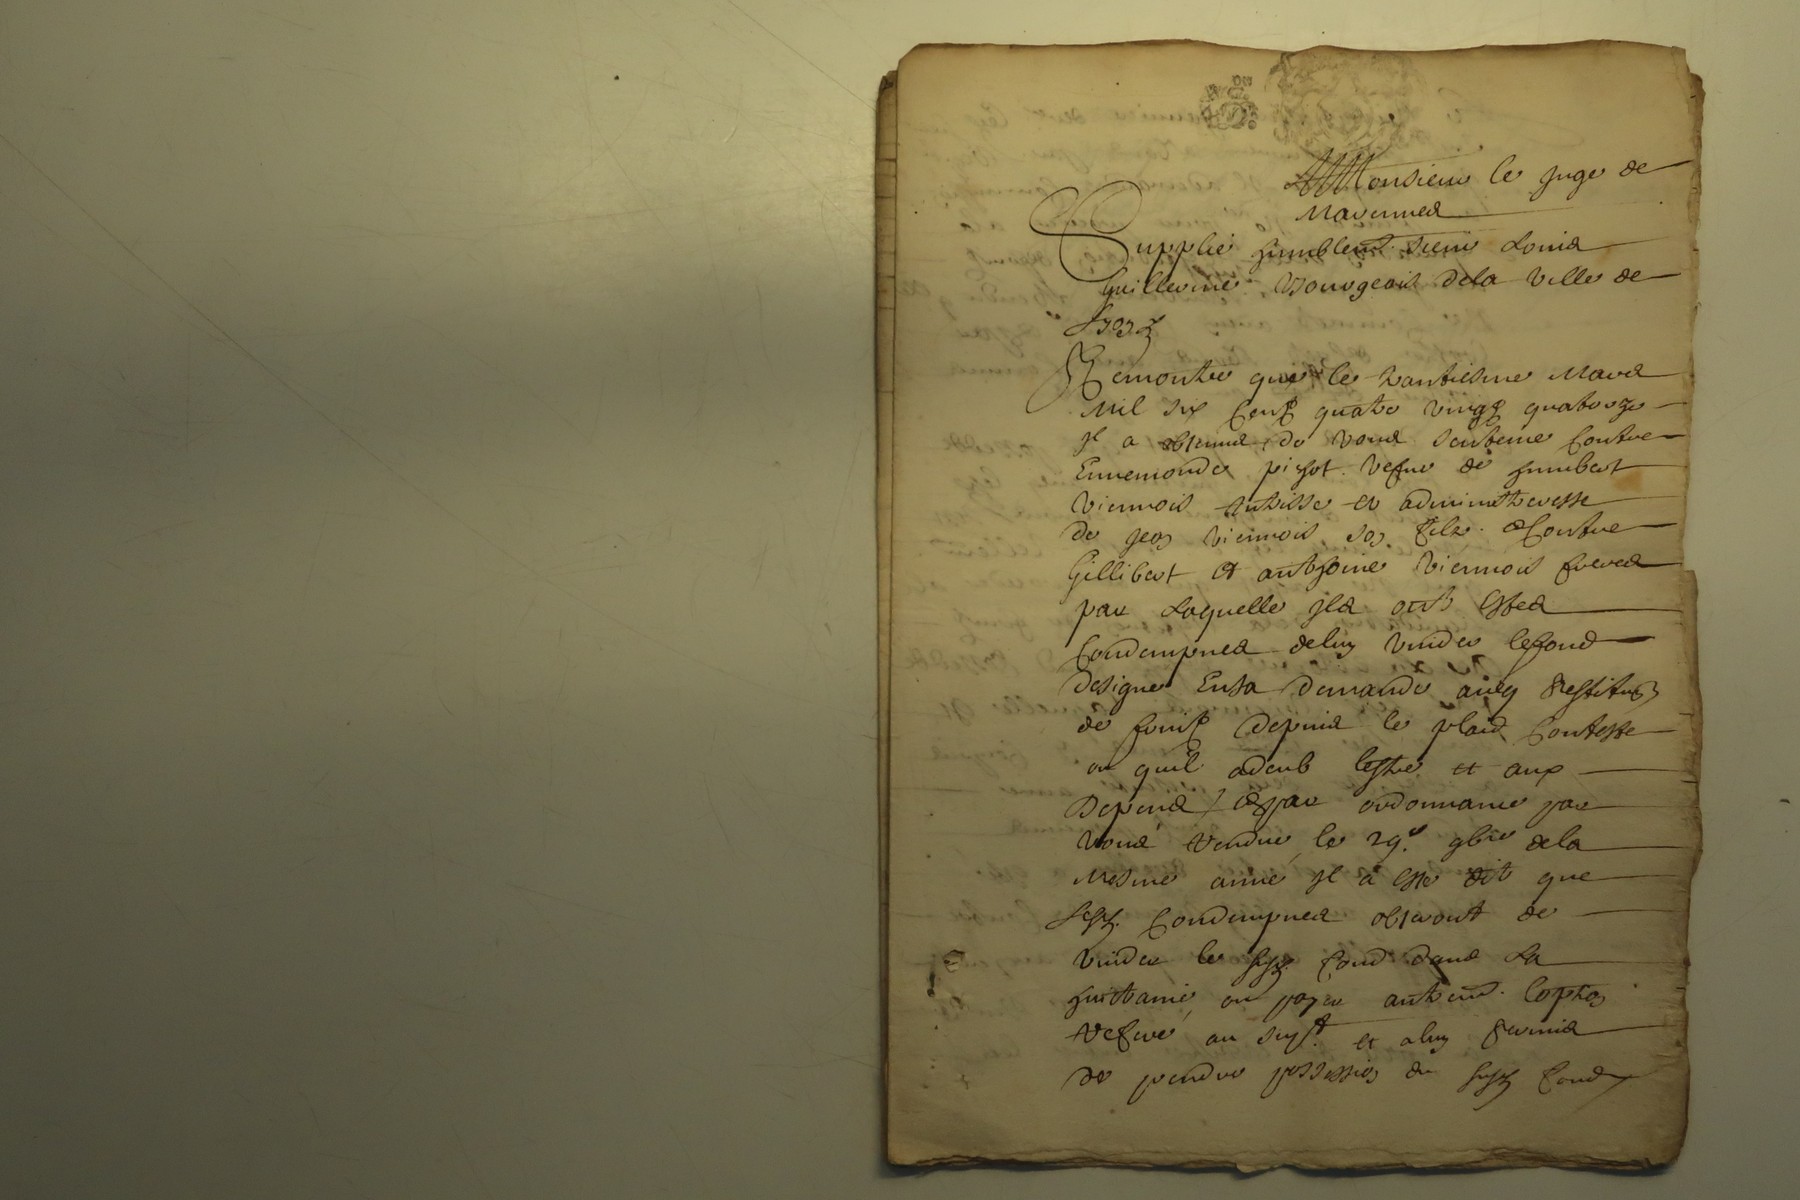 A Monsieur le juge de
Marennes
Supplie humblemt. sieur Louis
Guillermé Bourgeois dela ville de
Lyon
Remontre que le trantiesme Mars
Mil six centz quatre vingtz quatorze
Jl a obtenus de vous sentence Contre
Ennemonde pichot vefve de humbert
Viennois tutrisse et administreresse
de jean viennois son filz & Contre
Gillibert et anthoine Viennois freres
par Laquelle jls ont estes
Condempnes deluy vuider lefond
designe Ensa demande aveq Restitution
de fruitz depuis le plaid Conteste
ou quil adeub lestre et aux
depens & par ordonnance par
vous rendue le 29e. 9bre dela
mesme année jl a esté dit que
lesd. Condempnes obeiront de
vuider le susd. fond dans La
huittaine, ou payer autremt. loption
referé au supt. et aluy permis
de prendre possession du susd. fond